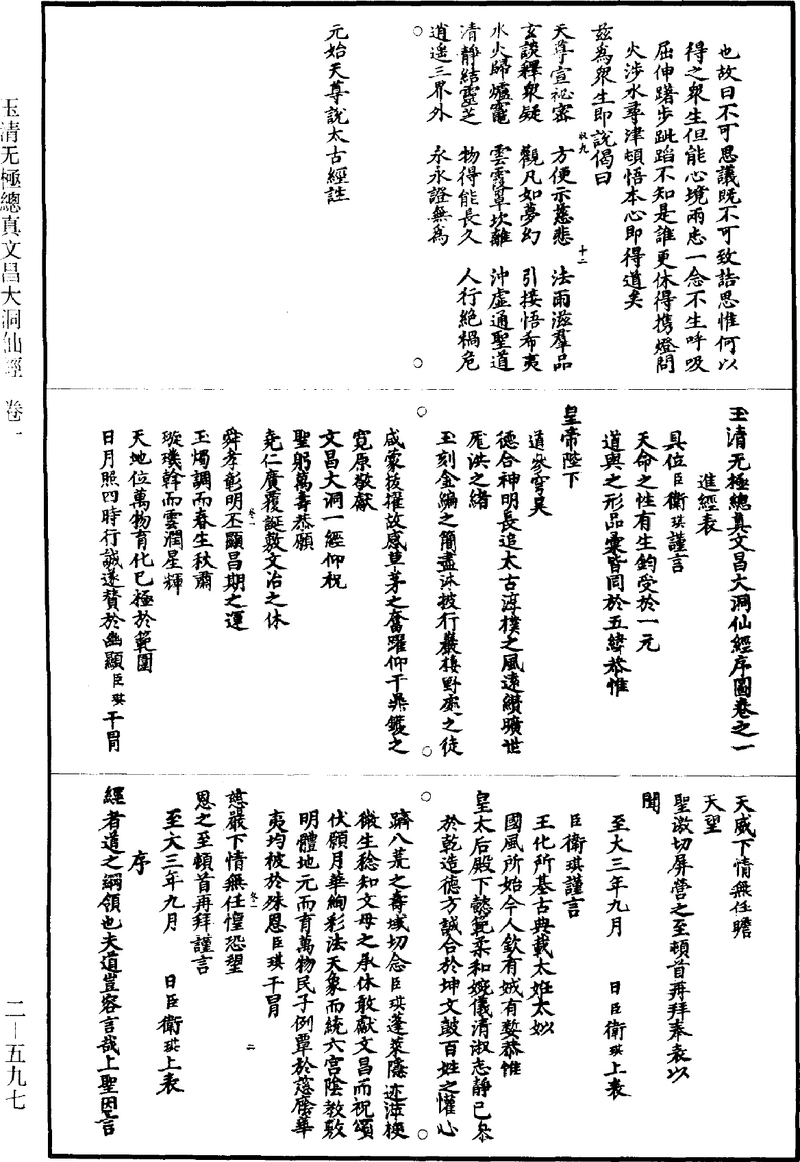 也故曰不可思議既不可致詰思惟何以
得之衆生但能心境兩忘一念不生呼吸
屈伸躇步跐蹈不知是誰更休得携燈問
火涉水尋津頓悟本心即得道矣
茲為衆生即說偈曰
天尊宣祕密 方便示慈悲 法雨滋羣品
玄談釋衆疑 觀凡如夢幻 引接悟希夷
水火歸爐竈 雲雷罩坎離 沖虛通聖道
清靜結靈芝 物得能長久 人行絕禍危
逍遥三界外 永永證無為
元始天尊說太古經註
玉清无極總真文昌大洞仙經序圖卷之一
進經表
具位臣衛琪謹言
天命之性有生鈞受於一元
道與之形品彙皆同於五緯恭惟
皇帝陛下
道參穹昊
德合神明長追太古淳樸之風遠纘曠世
厖洪之緒
玉刻金編之簡盡沐披行巖棲野處之徒
咸蒙拔擢故感草茅之奮躍仰干鼎鑊之
寬原敬獻
文昌大洞一經仰祝
聖躬萬壽恭願
堯仁廣覆誕敷文治之休
舜孝彰明丕顯昌期之運
玉燭調而春生秋肅
璇璣斡而雲潤星輝
天地位萬物育化已極於範圍
日月照四時行誠遂賛於幽顯臣琪干冐
天威下情無任瞻
天望
聖激切屏營之至頓首再拜奉表以
聞
至大三年九月 日臣衛琪上表
臣衛琪謹言
王化所基古典載太姙太姒
國風所始今人欽有娀有嫠恭惟
皇太后殿下懿範柔和婉儀清淑志靜已叅
於乾造德方誠合於坤文鼓百姓之懽心
躋八荒之壽域切念臣琪蓬萊隱迹萍梗
微生稔知文母之承休敢獻文昌而祝頌
伏願月華絢彩法天象而統六宮陰教敷
明體地元而育萬物民子例覃於蔭庥華
夷均被於殊恩臣琪干冒
慈嚴下情無任惶恐望
恩之至頓首再拜謹言
至大三年九月 日臣衛琪上表
序
經者道之綱領也夫道豈容言哉上聖因言
玉清无極總真文昌大洞仙經 卷一
二—五九七